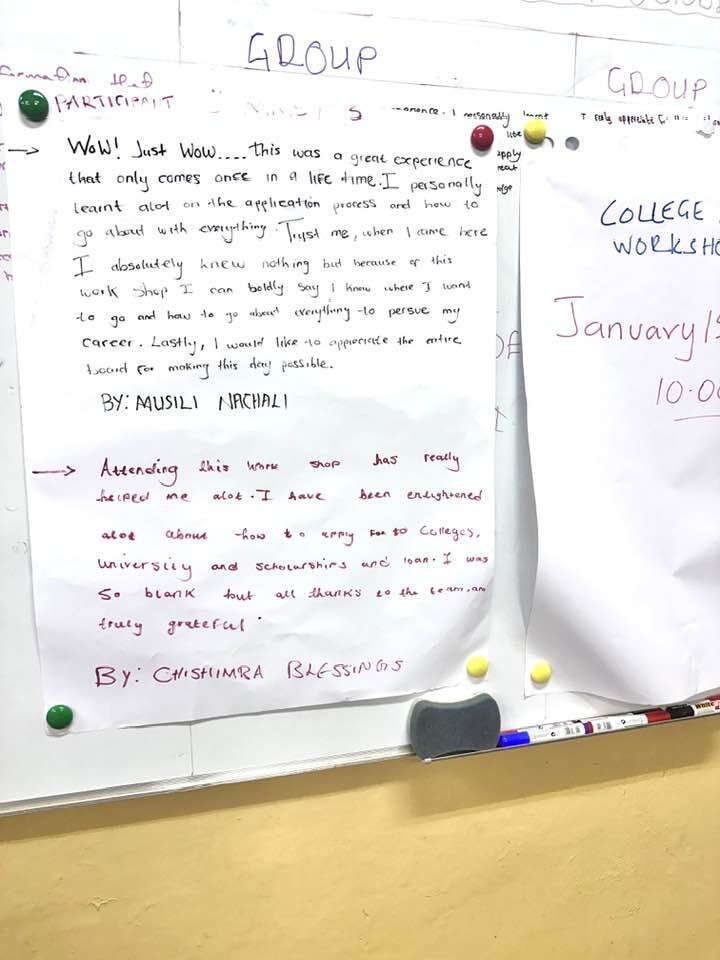 GROUP
GROUP
PARTICIPANT
personally learnt
apply
WOW! Just Wow.... This was a great experience
that only comes once in a life time. I personally
learnt alot on the application process and how to
go about with everything. Trust me, when I came here
I absolutely knew nothing but because of this
work shop I can boldly say I know where I want
to go and how to go about everything to persue my
career. Lastly, I would like to appreciate the entire
board for making this day possible.
BY: MUSILI NACHALI
Attending this work shop has really
helped me alot. I have been enlightened
alot about how to apply for to Colleges,
University and scholarships and loan. I was
so blank but all thanks to the team, am
truly grateful.
By: CHISHIMBA BLESSINGS
COLLEGE
WORKSHO
January 1
10.00
White